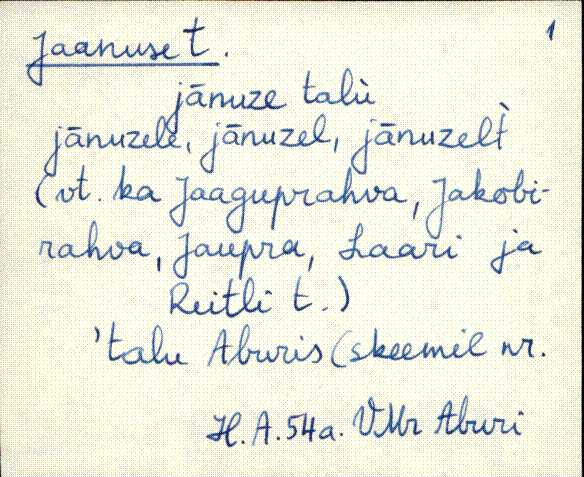 1
Jaanuse t.
jānuze talù
jānuzele, jānuzel, jānuzelt̀
(vt. ka Jaaguprahva, Jakobi-
rahva, Jaupra, Laari ja
Reitli t.)
'talu Aburis (skeemil nr.
H.A.54a. VMr Aburi